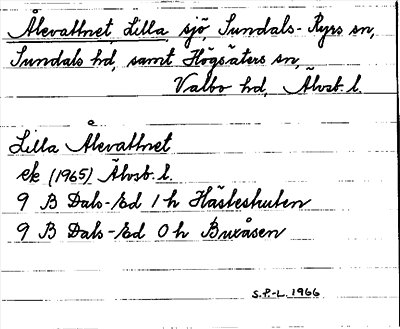 Ålevattnet, Lilla, sjö, Sundals-Ryrs sn,
Sundals hd, samt Högsäters sn,
Valbo hd, Älvsb. l.
Lilla Ålevattnet
ek (1965) Älvsb. l.
9 B Dals-Ed 1 h Hästeshuten
9 B Dals-Ed 0 h Buxåsen
S.P.-L. 1966